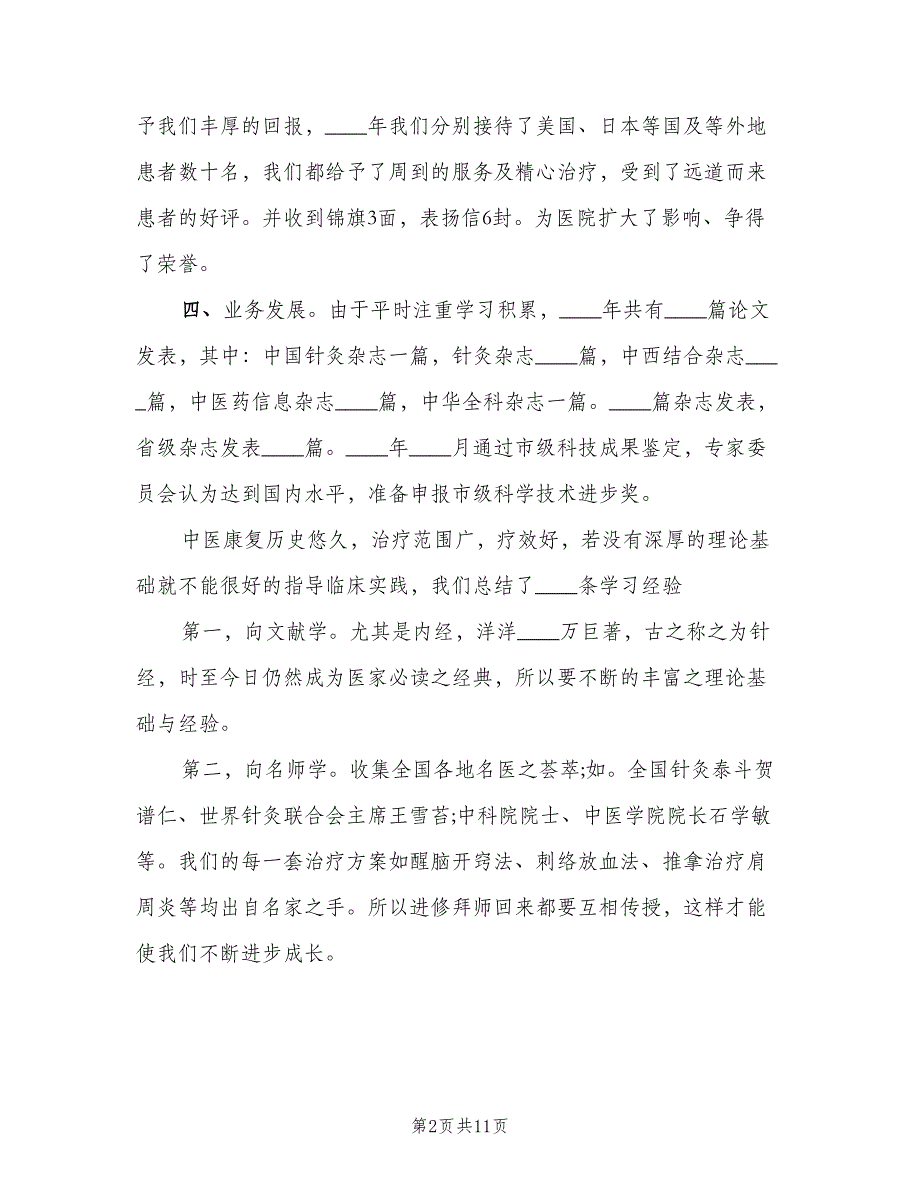 予我们丰厚的回报，____年我们分别接待了美国、日本等国及等外地
患者数十名，我们都给予了周到的服务及精心治疗，受到了远道而来
患者的好评。并收到锦旗3面，表扬信6封。为医院扩大了影响、争得
了荣誉。
四、业务发展。由于平时注重学习积累，____年共有____篇论文
发表，其中：中国针灸杂志一篇，针灸杂志____篇，中西结合杂志___
_篇，中医药信息杂志____篇，中华全科杂志一篇。____篇杂志发表，
省级杂志发表____篇。____年____月通过市级科技成果鉴定，专家委
员会认为达到国内水平，准备申报市级科学技术进步奖。
中医康复历史悠久，治疗范围广，疗效好，若没有深厚的理论基
础就不能很好的指导临床实践，我们总结了____条学习经验
第一，向文献学。尤其是内经，洋洋____万巨著，古之称之为针
经，时至今日仍然成为医家必读之经典，所以要不断的丰富之理论基
础与经验。
第二，向名师学。收集全国各地名医之荟萃;如。全国针灸泰斗贺
谱仁、世界针灸联合会主席王雪苔;中科院院士、中医学院院长石学敏
等。我们的每一套治疗方案如醒脑开窍法、刺络放血法、推拿治疗肩
周炎等均出自名家之手。所以进修拜师回来都要互相传授，这样才能
使我们不断进步成长。
第2页共11页